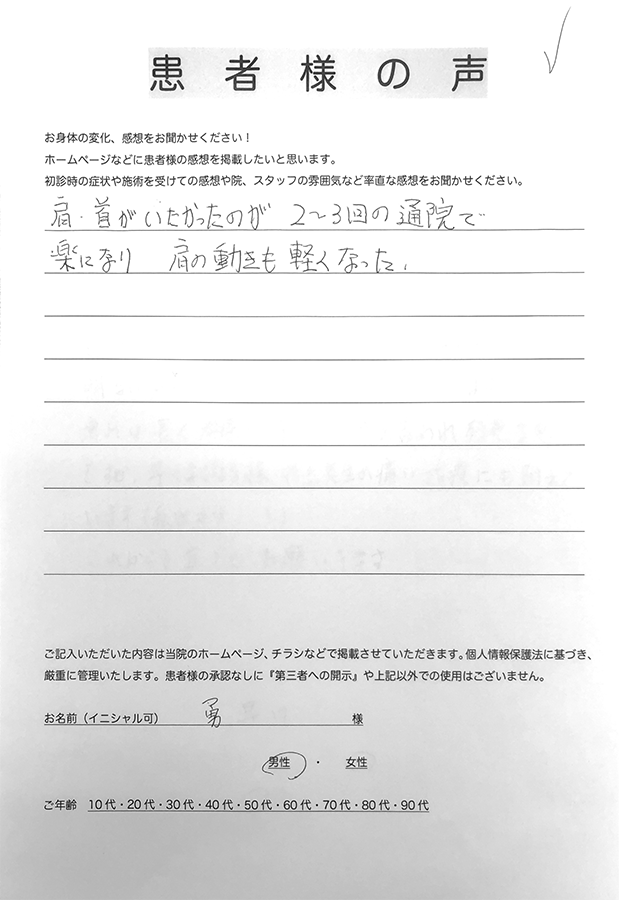 患者様の声
お身体の変化、感想をお聞かせください！
ホームページなどに患者様の感想を掲載したいと思います。
初診時の症状や施術を受けての感想や院、スタッフの雰囲気など率直な感想をお聞かせください。
肩・首がいたかったのが 2〜3回の通院で
楽になり 肩の動きも軽くなった。
ご記入いただいた内容は当院のホームページ、チラシなどで掲載させていただきます。個人情報保護法に基づき、
厳重に管理いたします。患者様の承認なしに『第三者への開示』や上記以外での使用はございません。
お名前（イニシャル可） 勇 様
男性 ・ 女性
ご年齢 10代・20代・30代・40代・50代・60代・70代・80代・90代